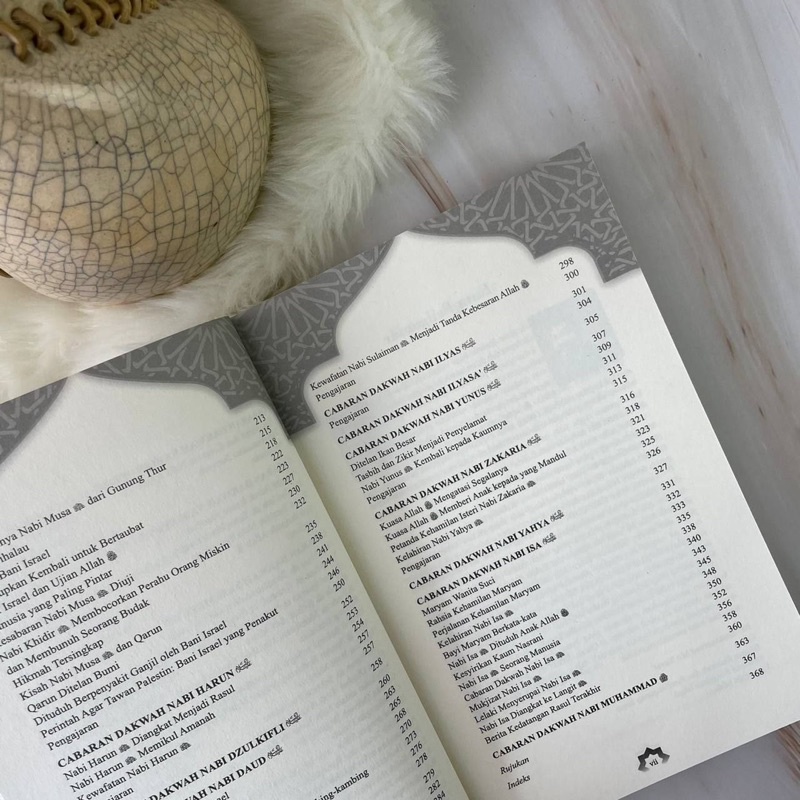 nya Nabi Musa dari Gunung Thur 213
halau 215
Bani Israel 218
upkan Kembali untuk Bertaubat 222
Israel dan Ujian Allah 223
nusia yang Paling Pintar 227
esabaran Nabi Musa Diuji 230
Nabi Khidir Membocorkan Perahu Orang Miskin 232
dan Membunuh Seorang Budak
Hikmah Tersingkap 235
Kisah Nabi Musa dan Qarun 238
Qarun Ditelan Bumi 241
Dituduh Berpenyakit Ganjil oleh Bani Israel 244
Perintah Agar Tawan Palestin: Bani Israel yang Penakut 246
Pengajaran 250
CABARAN DAKWAH NABI HARUN 252
Nabi Harun Diangkat Menjadi Rasul 253
Nabi Harun Memikul Amanah 254
Kewafatan Nabi Harun 257
jaran 257
DAKWAH NABI DZULKIFLI 258
DAKWAH NABI DAUD 260
263
265
268
270
273
276
278
279
284
rael
ing-kambing
Kewafatan Nabi Sulaiman Menjadi Tanda Kebesaran Allah 298
Pengajaran 300
CABARAN DAKWAH NABI ILYAS 301
Pengajaran 304
CABARAN DAKWAH NABI ILYASA' 305
CABARAN DAKWAH NABI YUNUS 307
Ditelan Ikan Besar 309
Tasbih dan Zikir Menjadi Penyelamat 311
Nabi Yunus Kembali kepada Kaumnya 313
Pengajaran 315
CABARAN DAKWAH NABI ZAKARIA 316
Kuasa Allah Mengatasi Segalanya 318
Kuasa Allah Memberi Anak kepada yang Mandul 321
Petanda Kehamilan Isteri Nabi Zakaria 323
Kelahiran Nabi Yahya 325
Pengajaran 326
CABARAN DAKWAH NABI YAHYA 327
CABARAN DAKWAH NABI ISA 331
Maryam Wanita Suci 332
Rahsia Kehamilan Maryam 333
Perjalanan Kehamilan Maryam 335
Kelahiran Nabi Isa 338
Bayi Maryam Berkata-kata 340
Nabi Isa Dituduh Anak Allah 343
Kesyirikan Kaum Nasrani 345
Nabi Isa Seorang Manusia 348
Cabaran Dakwah Nabi Isa 350
Mukjizat Nabi Isa 352
Lelaki Menyerupai Nabi Isa 356
Nabi Isa Diangkat ke Langit 358
Berita Kedatangan Rasul Terakhir 360
CABARAN DAKWAH NABI MUHAMMAD 363
Rujukan 367
Indeks 368
vii